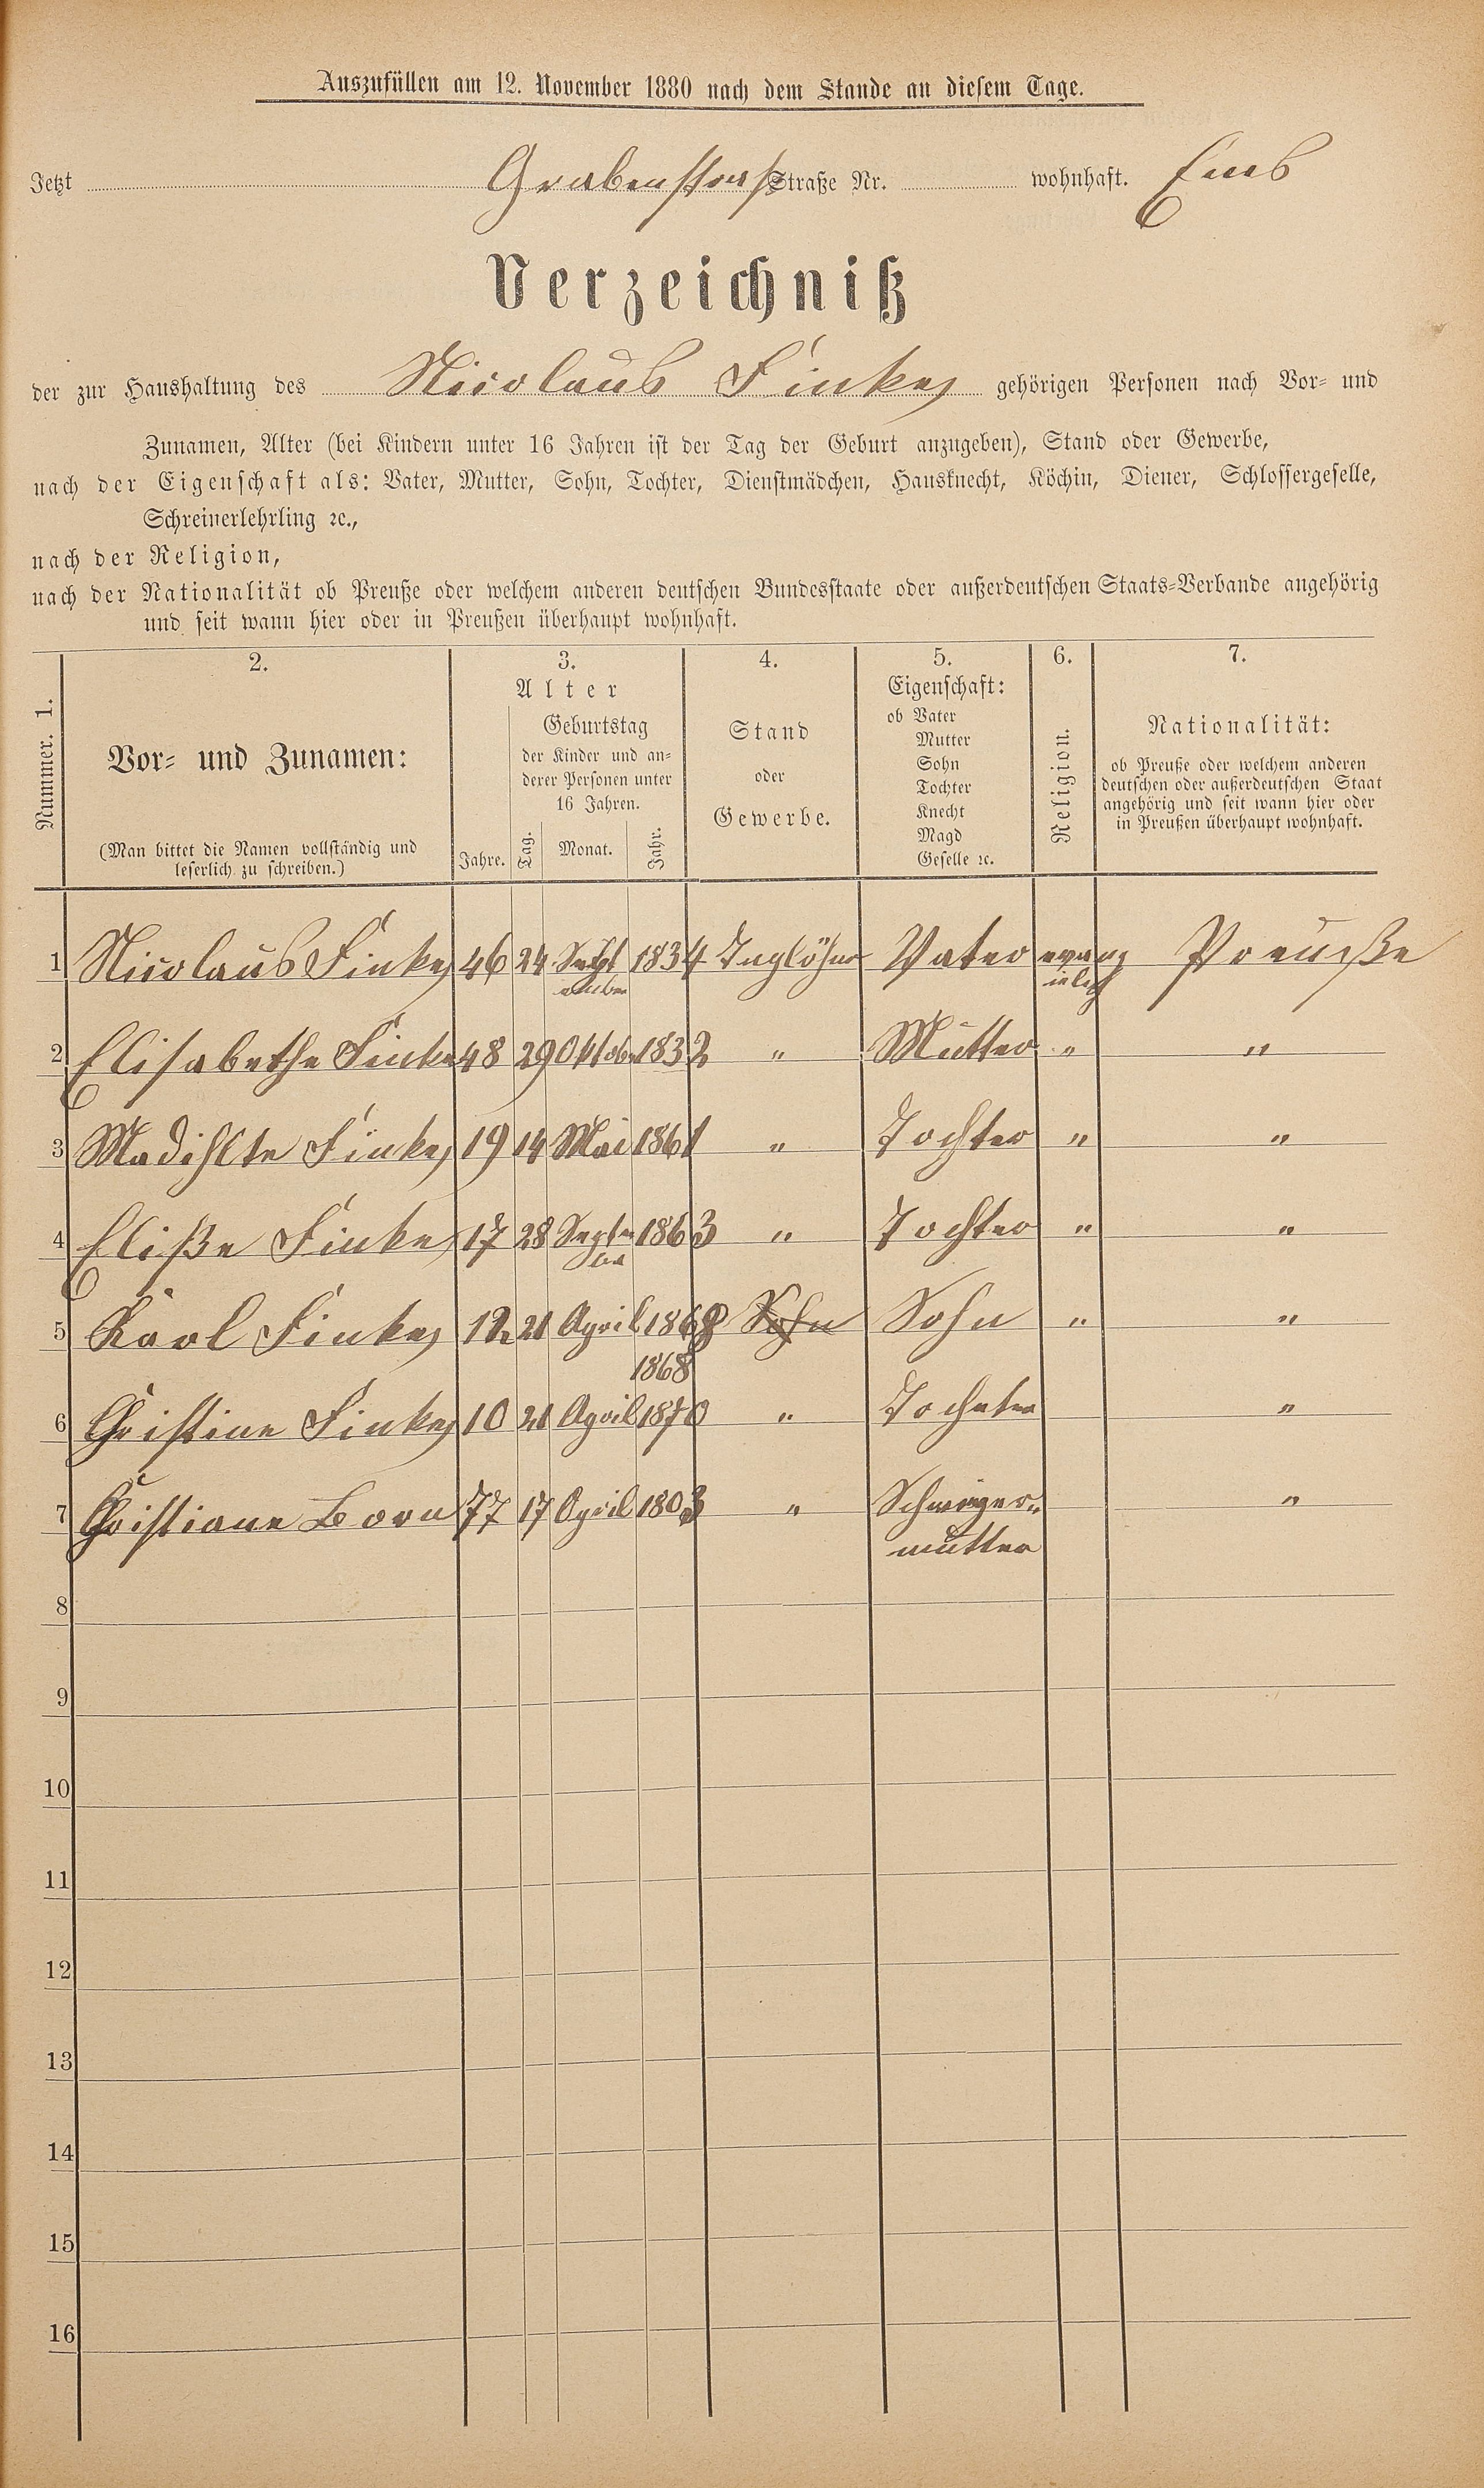 Auszufüllen am 12. November 1880 nach dem Stande an diesem Tage.
Jetzt Grabenstraß Straße Nr. wohnhaft. Ems
Verzeichniß
der zur Haushaltung des Nicolaus Finkes gehörigen Personen nach Vor- und
Zunamen, Alter (bei Kindern unter 16 Jahren ist der Tag der Geburt anzugeben), Stand oder Gewerbe,
nach der Eigenschaft als: Vater, Mutter, Sohn, Tochter, Dienstmädchen, Hausknecht, Köchin, Diener, Schlossergeselle,
Schreinerlehrling ꝛc.,
nach der Religion,
nach der Nationalität ob Preuße oder welchem anderen deutschen Bundesstaate oder außerdeutschen Staats-Verbande angehörig
und seit wann hier oder in Preußen überhaupt wohnhaft.
Nummer. 1.
2.
Vor- und Zunamen:
(Man bittet die Namen vollständig und
leserlich zu schreiben.)
3.
Alter
Jahre.
Geburtstag
der Kinder und an-
derer Personen unter
16 Jahren.
Tag. Monat. Jahr.
4.
Stand
oder
Gewerbe.
5.
Eigenschaft:
ob Vater
Mutter
Sohn
Tochter
Knecht
Magd
Geselle ꝛc.
6.
Religion.
7.
Nationalität:
ob Preuße oder welchem anderen
deutschen oder außerdeutschen Staat
angehörig und seit wann hier oder
in Preußen überhaupt wohnhaft.
1 Nicolaus Finkes 46 24 September 1834 Taglöhner Vater evangielich Preuße
2 Elisabethe Finke 48 29 Oktober 1832 " Mutter " "
3 Madihlte Finkes 19 14 Mai 1861 " Tochter " "
4 Eliße Finkes 17 28 September 1863 " Tochter " "
5 Karl Finkes 12 21 April 1868 Sohn Sohn " "
1868
6 Christine Finkes 10 21 April 1870 " Tochter "
7 Christiane Born 77 17 April 1803 " Schwieger- "
mutter
8
9
10
11
12
13
14
15
16